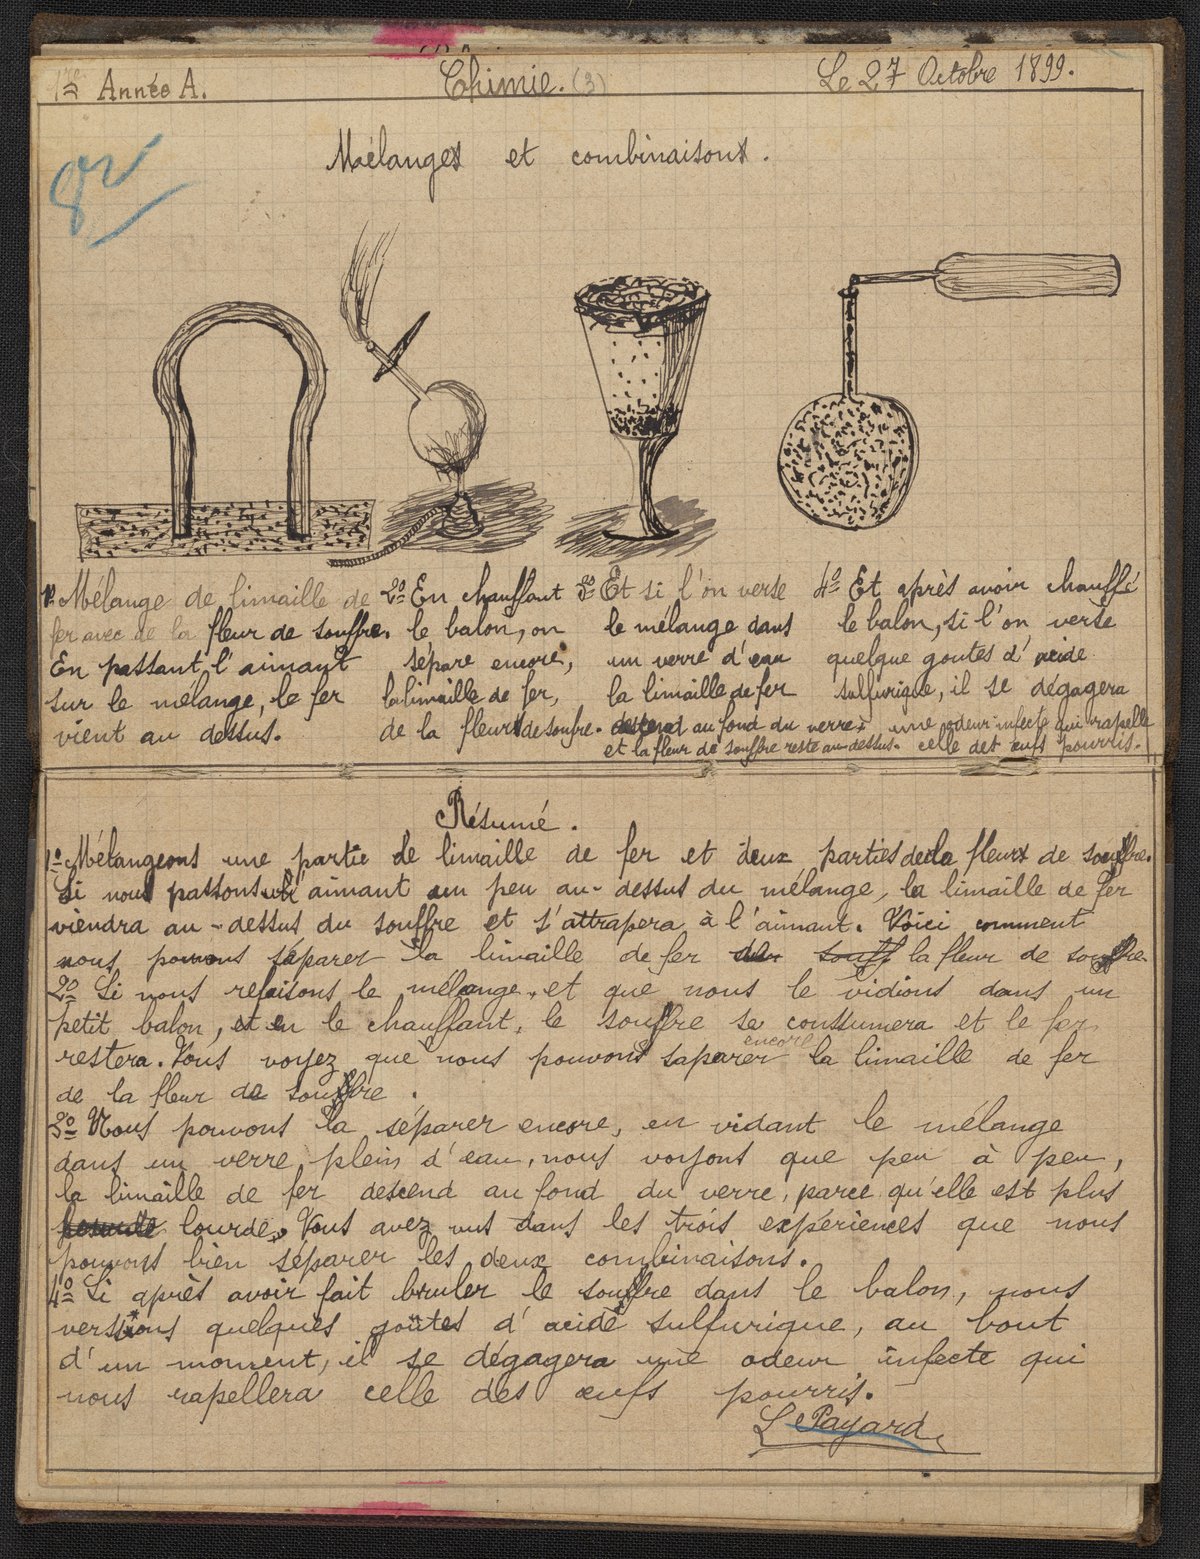 1re Année A.
Chimie. (3)
Le 27 Octobre 1899.
Mélanges et combinaisons.
1º Mélange de limaille de
fer avec de la fleur de souffre.
En passant l'aimant
sur le mélange, le fer
vient au dessus.
2º En chauffant
le balon, on
sépare encore,
la limaille de fer,
de la fleur de soufre.
3º Et si l'on verse
le mélange dans
un verre d'eau
la limaille de fer
destend au fond du verre
et la fleur de souffre reste au-dessus.
4º Et après avoir chauffé
le balon, si l'on verse
quelque goutes d'acide
sulfurique, il se dégagera
une odeur infecte qui rapelle
celle des œufs pourris.
Résumé.
1º Mélangeons une partie de limaille de fer et deux parties de la fleur de souffre.
Si nous passons l'aimant un peu au-dessus du mélange, la limaille de fer
viendra au-dessus du souffre et s'attrapera à l'aimant. Voici comment
nous pouvons séparer la limaille de fer de souff la fleur de souffre
2º Si nous refaisons le mélange, et que nous le vidions dans un
petit balon, et en le chauffant, le souffre se consumera et le fer
restera. Vous voyez que nous pouvons encore saparer la limaille de fer
de la fleur de souffre.
3º Nous pouvons la séparer encore, en vidant le mélange
dans un verre plein d'eau, nous voyons que peu à peu,
la limaille de fer descend au fond du verre, parce qu'elle est plus
lourde. Vous avez vus dans les trois expériences que nous
pouvons bien séparer les deux combinaisons.
4º Si après avoir fait bruler le souffre dans le balon, nous
versions quelques goûtes d'acide sulfurique, au bout
d'un moment, il se dégagera une odeur infecte qui
nous rapellera celle des œufs pourris.
L Payard